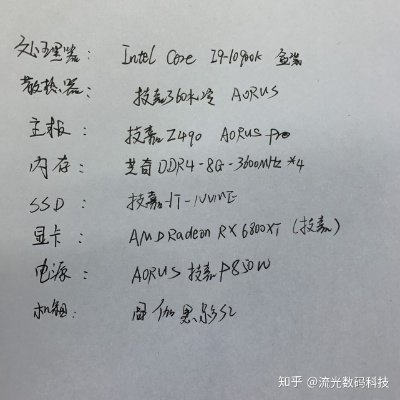 处理器: Intel Core I9-10900k 盒装
散热器: 技嘉360水冷 AORUS
主板: 技嘉Z490 AORUS Pro
内存: 芝奇DDR4-8G-3600MHz*4
SSD: 技嘉-1T-NVME
显卡: AMD Radeon RX 6800XT (技嘉)
电源: AORUS 技嘉P850W
机箱:
知乎 @流光数码科技